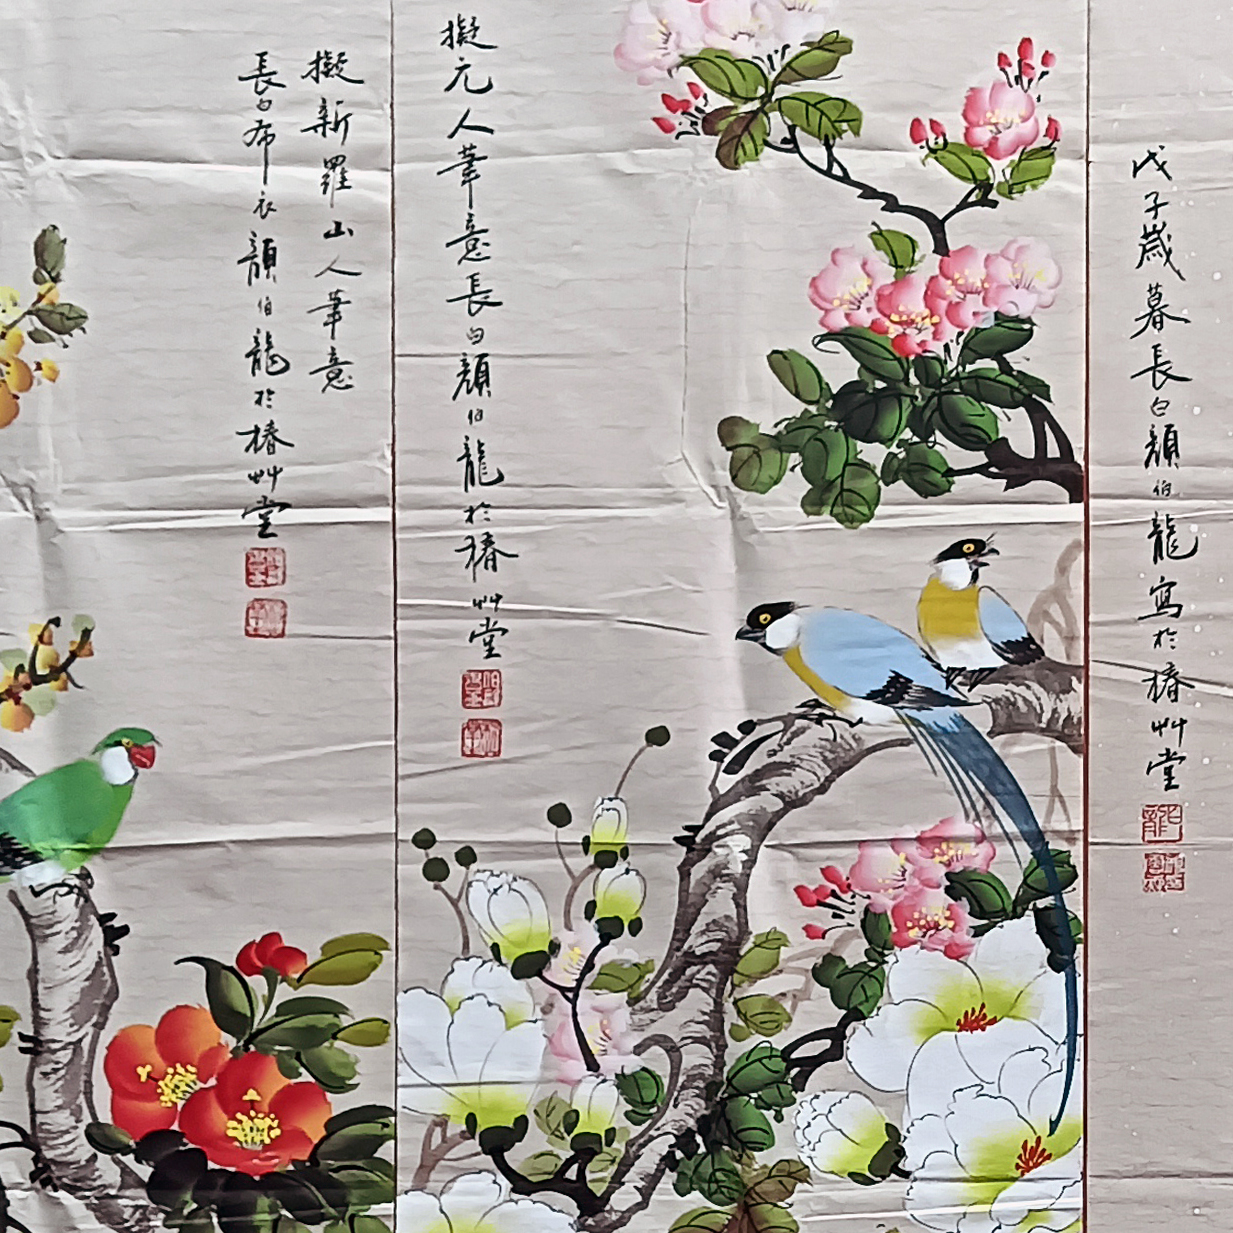 戊子歲暮長白顏伯龍寫於椿艸堂
擬元人筆意長白顏伯龍於椿艸堂
擬新羅山人筆意
長白布衣顏伯龍於椿艸堂